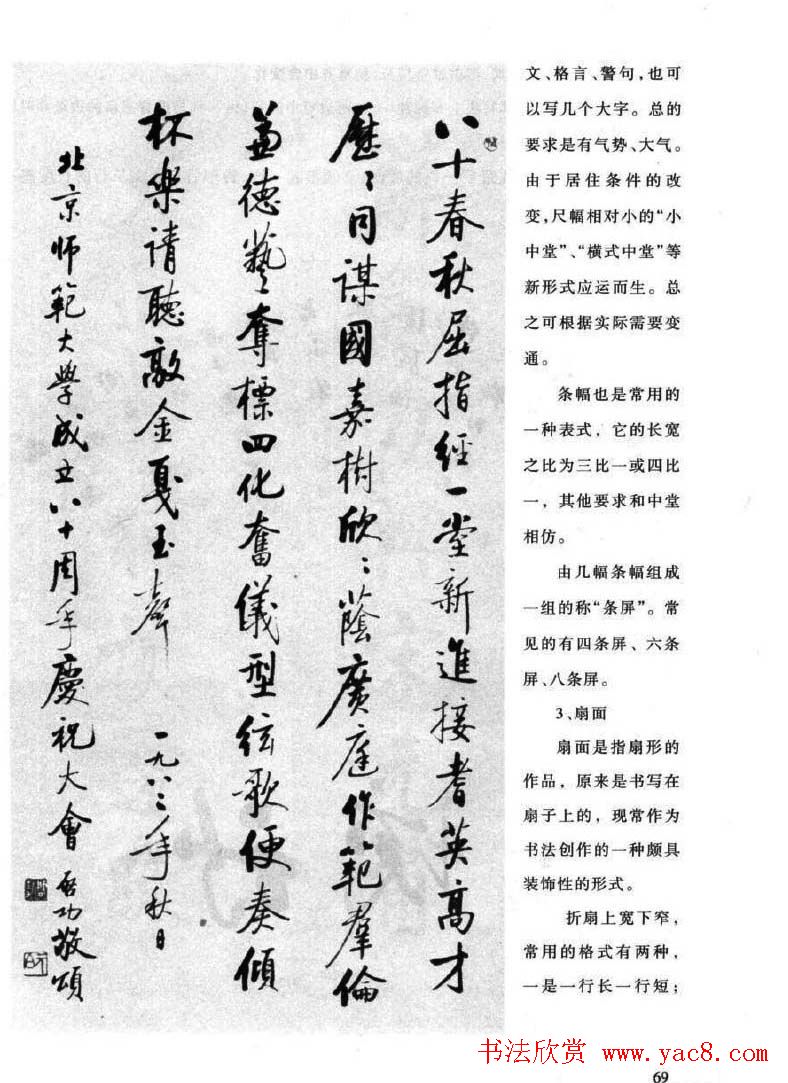 八十春秋屈指經一堂新進接耆英高才
歷〻同谋國嘉樹欣〻蔭廣庭作範羣倫
兼德藝奪標四化奮儀型弦歌便奏傾
杯樂請聽敲金戛玉聲 一九八二年秋日
北京师範大学成立八十周年慶祝大會 启功敬頌
文、格言、警句,也可
以写几个大字。总的
要求是有气势、大气。
由于居住条件的改
变,尺幅相对小的“小
中堂”、“横式中堂”等
新形式应运而生。总
之可根据实际需要变
通。
条幅也是常用的
一种表式，它的长宽
之比为三比一或四比
一，其他要求和中堂
相仿。
由几幅条幅组成
一组的称“条屏”。常
见的有四条屏、六条
屏、八条屏。
3、扇面
扇面是指扇形的
作品，原来是书写在
扇子上的，现常作为
书法创作的一种颇具
装饰性的形式。
折扇上宽下窄，
常用的格式有两种，
一是一行长一行短；
书法欣赏 www.yac8.com
69